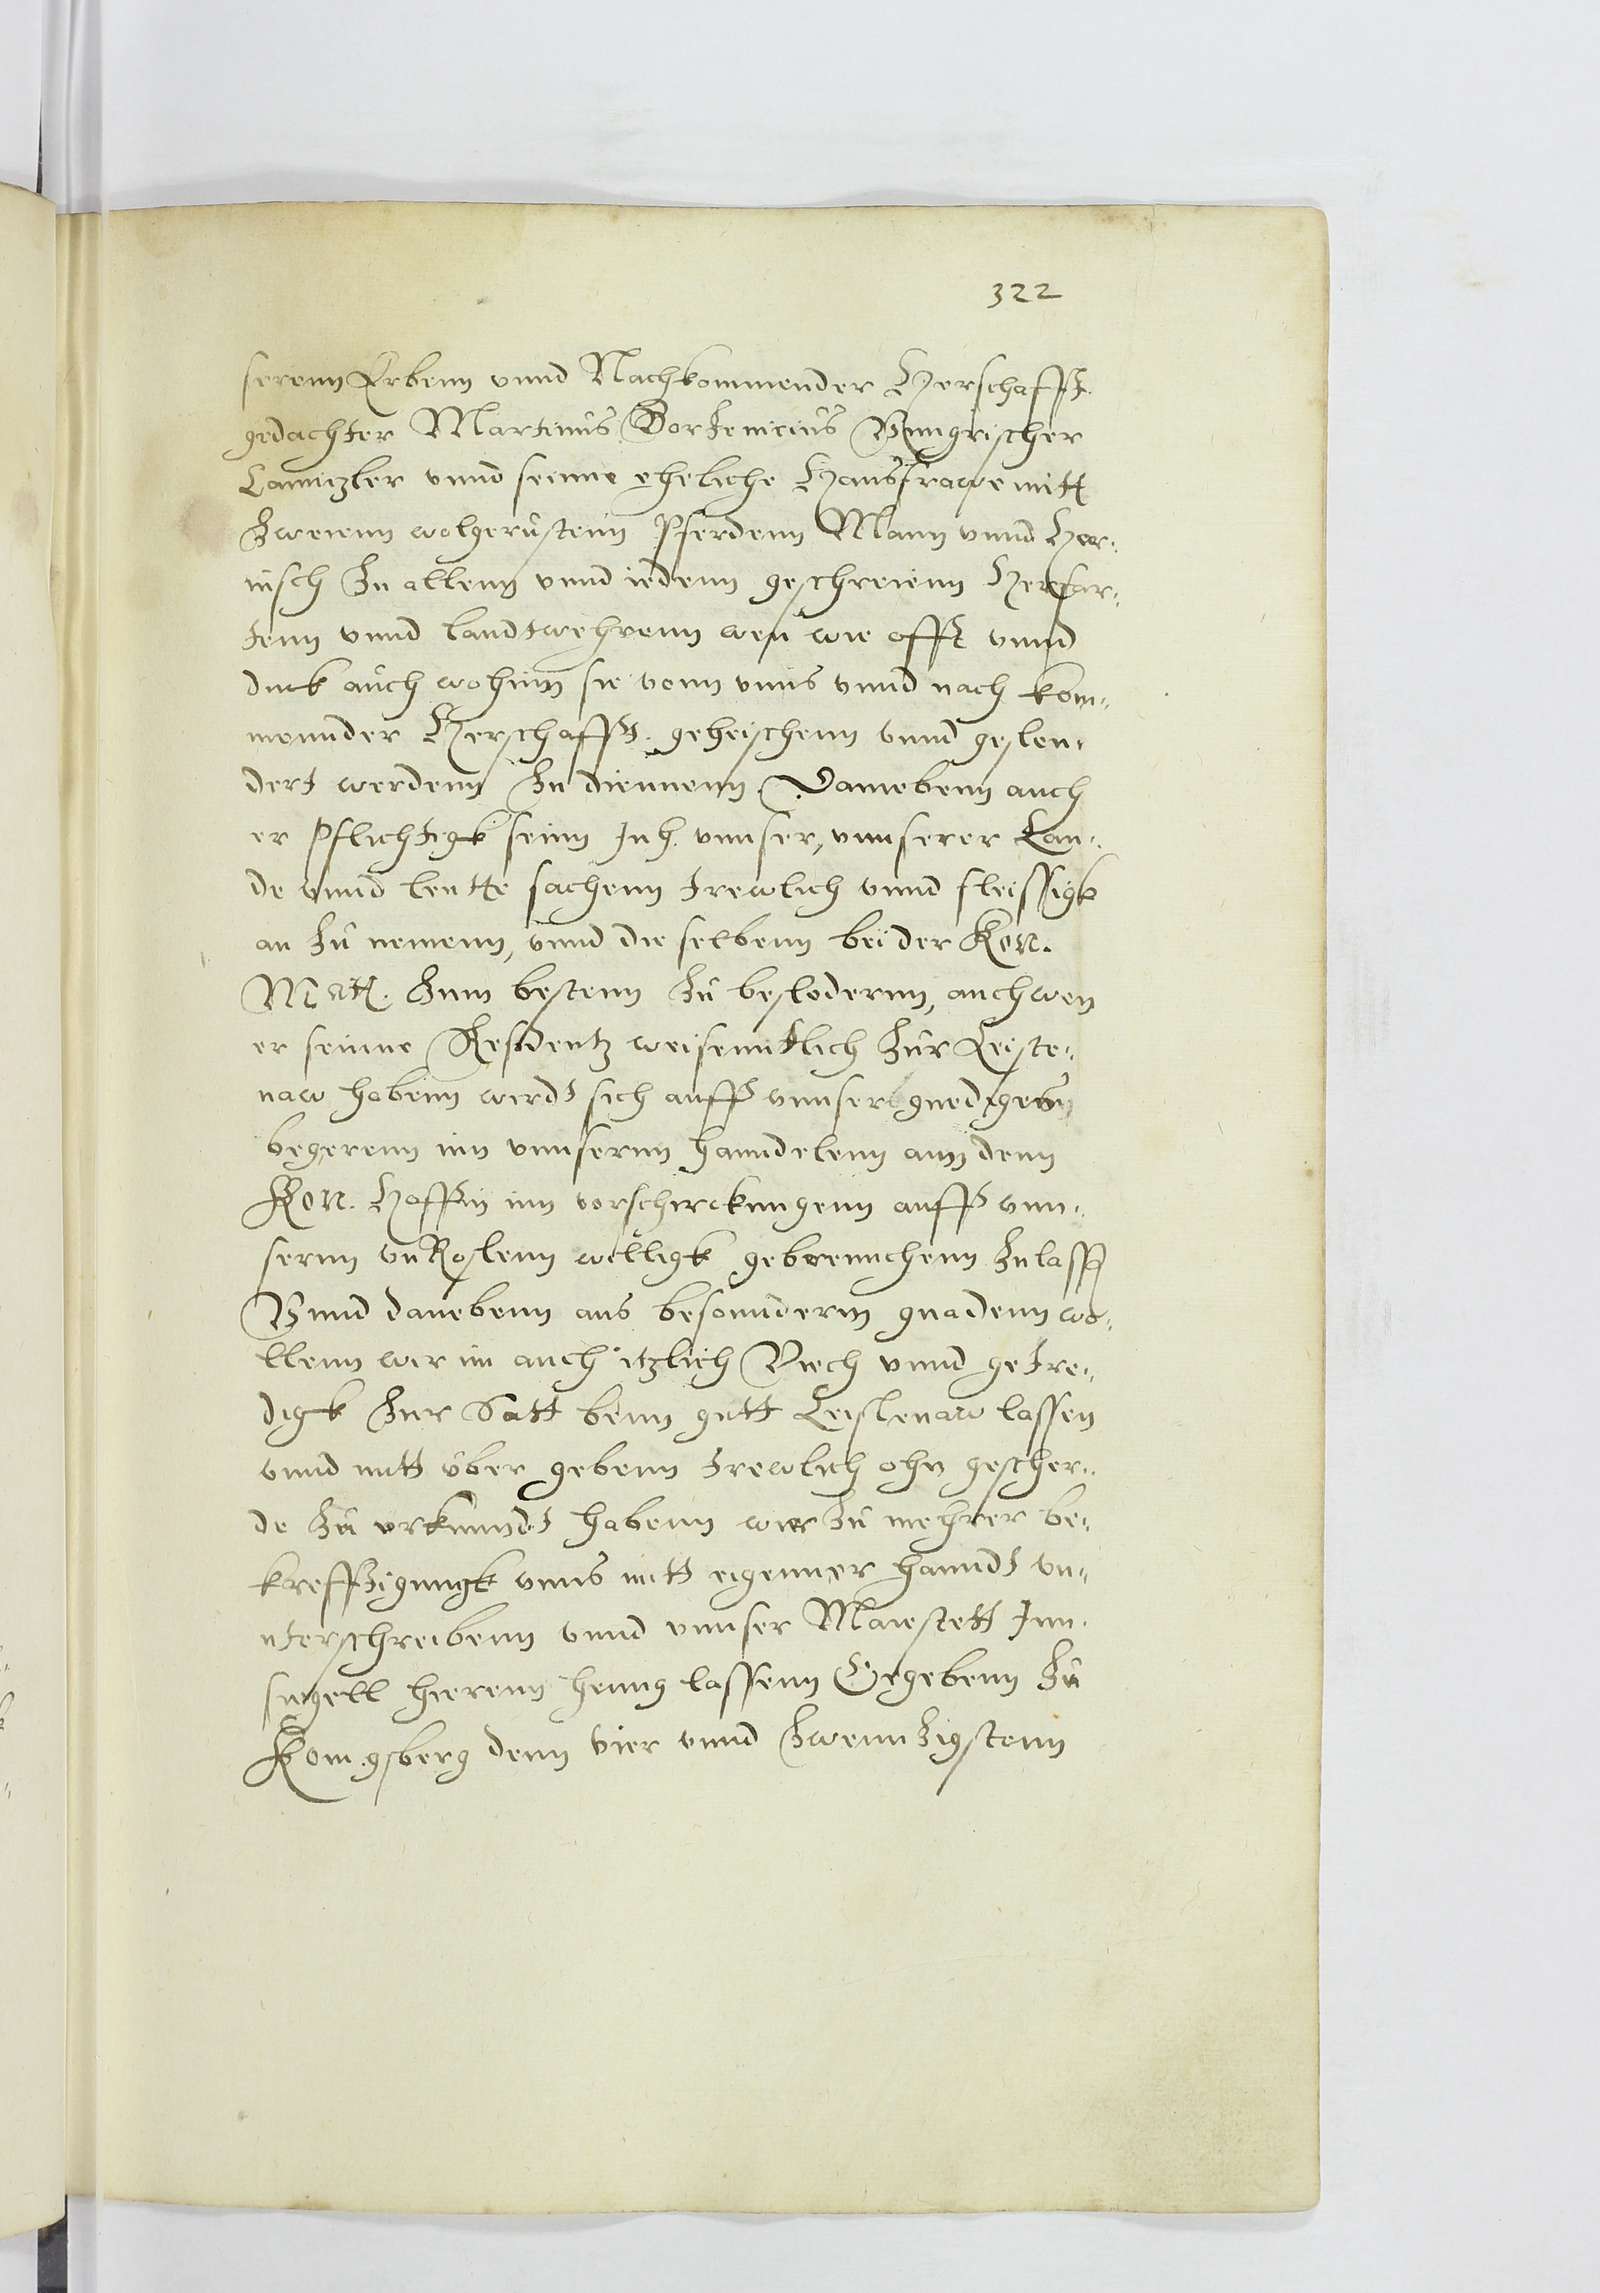 322
serenn Erbenn vnnd Nachkommender Herschafft.
gedachter Martinus Dorzenicius Vnngrischer
Canntzler vnnd seinne eheliche Hausfrawe mitt
Zweienn wolgerustenn Pferdenn Mann vnnd Har¬
nisch Zu allenn vnnd iedenn geschreienn Herfar¬
tenn vnnd landtwehrenn wen wie offt vnnd
dick auch wohinn sie vonn vnns vnnd nach kom¬
mennder Herschafft. geheischenn vnnd
dert werdenn Zu diennenn. Dannebenn auch
er Pflichtigk seinn vnnser, vnnserer Lan¬
de vnnd leutte sachenn trewlich vnnd fleissigk
an Zu nemenn, vnnd die selbenn bei der Kon.
Matt. Zum bestenn Zu befodernn, auch wen
er seinne Residentz weisenntlich Zur Leiste¬
naw habenn wirdt sich auff vnnser gnediges
begerenn inn vnnsernn hanndelenn ann denn
Kon. Hoffin inn vorschickungenn auff vnn¬
sernn vnkostenn willigk gebreuchenn Zulass
Vnnd danebenn aus besonndernn gnadenn wo¬
llenn wir im auch etzlich Viech vnnd getre¬
digk Zur Satt benn gutt Leistenaw lassen
vnnd mitt über gebenn trewlich ohn gefher¬
de Zu vrkunndt habenn wir Zu mehrer be¬
krefftigungk vnns mitt eigenner hanndt vn¬
nterschreibenn vnnd vnnser Maiestett Inn¬
sigell hierenn henng lassenn Gegebenn Zu
Konigsberg denn vier vnnd Zwenntzigstenn